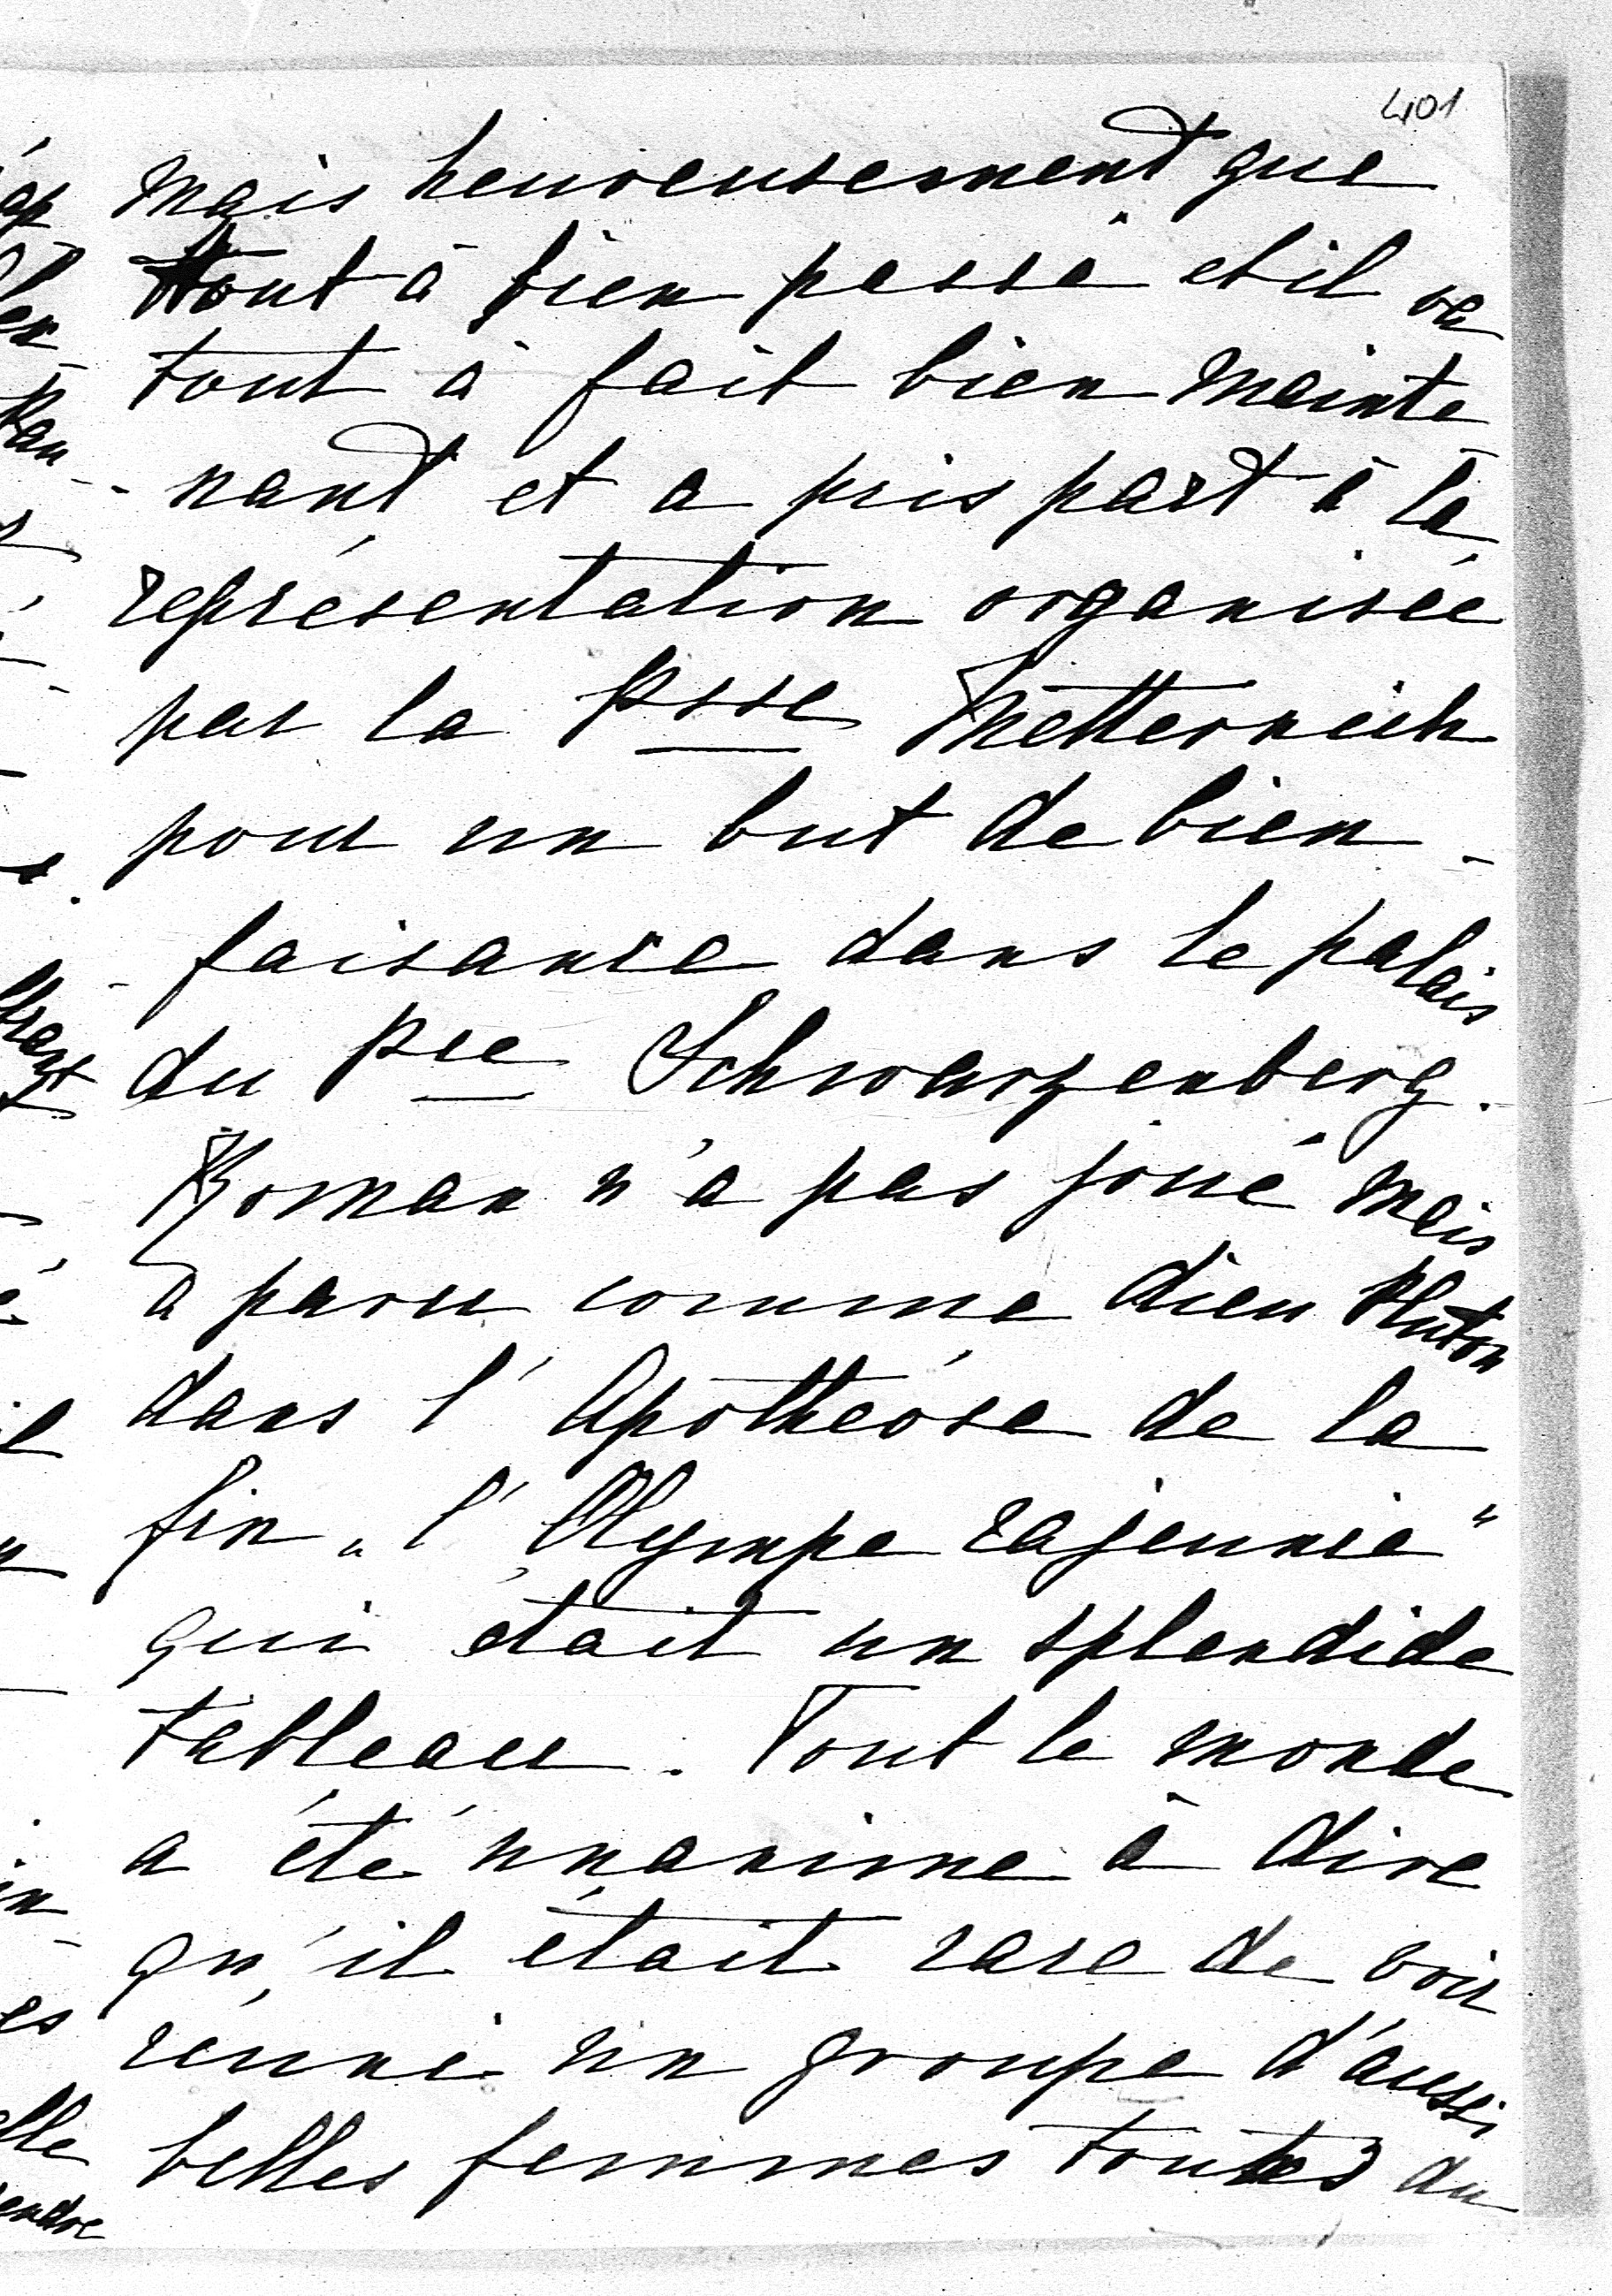 401
mais heureusement que
tout à bien passé et il va
tout à fait bien mainte
- nant et a pris part à la
représentation organisée
par la Psse Metternich
pour un but de bien -
- faisance dans le palais
du Pce Schwarzenberg.
Roman n'a pas joué mais
a paru comme dieu Pluton
dans l'Apothéose de la
fin „l'Olympe rajeunie"
qui était un splendide
tableau. Tout le monde
a été unanime à dire
qu'il était rare de voir
réuni un groupe d'aussi
belles femmes toutes du